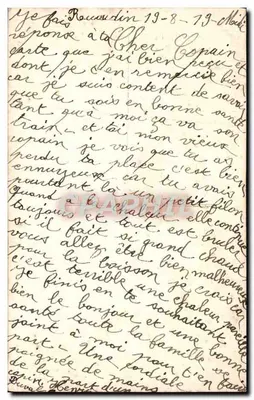 Romandin 19-8-19
Je fais
réponse à ta Cher Copain
carte que j'ai bien reçu et
dont je t'en remercie bien
car je suis content de savoir
que tu sois en bonne santé
tant qu'à moi ça va son
train et toi mon vieux
copain je vois que tu as
perdu ta place c'est bien
ennuyeux car tu avais
pourtant là un petit filon
Quand à la chaleur elle continue
toujours et tout est brulé
si il fait si grand chaud
vous allez être bien malheureux
par la boisson je crois
c'est terrible une chaleur pareille
je finis en te souhaitant
bien le bonjour et une bonne
santé toute la famille se
joint à moi pour t'en faire
part Une cordiale
poignée de mains
de la part d'un
copain Henri
CPAPHIL